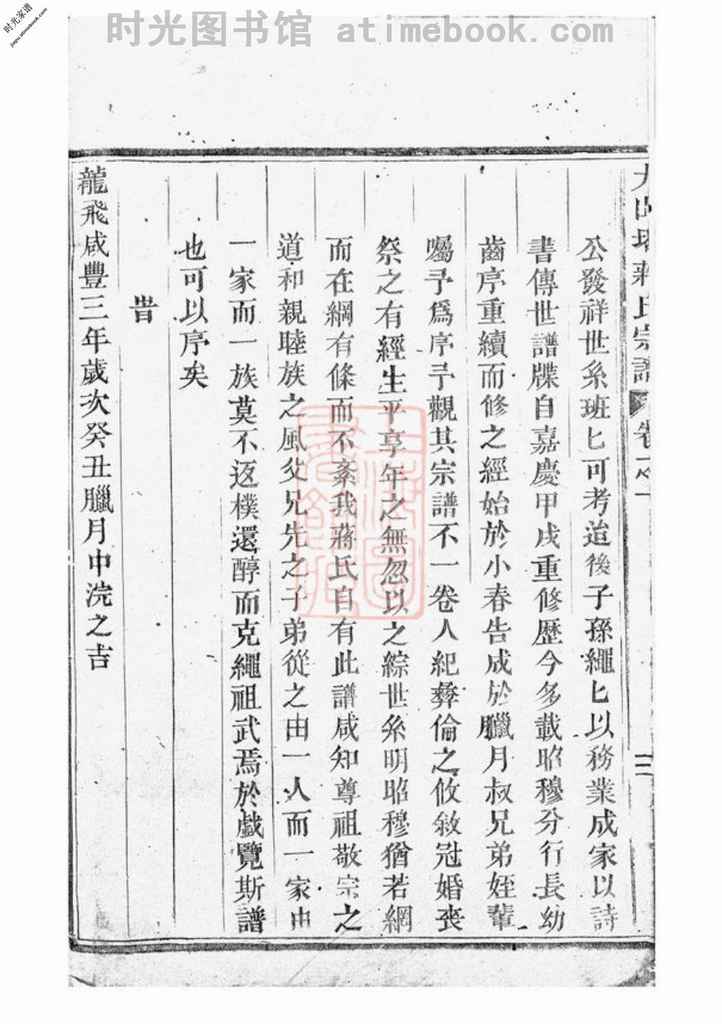 时光图书馆 atimebook.com
时光家谱
jiapu.atimebook.com
氏宗譜 卷之一
公發祥世系班匕可考迨後子孫繩匕以務業成家以詩
書傳世譜牒自嘉慶甲戌重修歷今多載昭穆分行長幼
齒序重續而修之經始於小春告成於臘月叔兄弟姪輩
囑予爲序予觀其宗譜不一卷人紀彝倫之攸敘冠婚喪
祭之有經生平享年之無忽以之綜世系明昭穆猶若綱
而在綱有條而不紊我蔣氏自有此譜咸知尊祖敬宗之
道和親睦族之風父兄先之子弟從之由一人而一家由
一家而一族莫不返樸還醇而克繩祖武焉於戲覽斯譜
也可以序矣
旹
龍飛咸豐三年歲次癸丑臘月中浣之吉